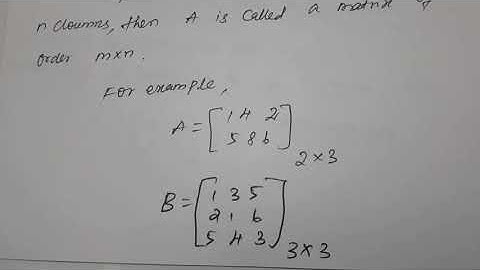 n cloumns, then A is called a matrix of
order m×n.
For example,
A = [1 4 2
5 8 6] 2×3
B = [1 3 5
2 1 6
5 4 3] 3×3